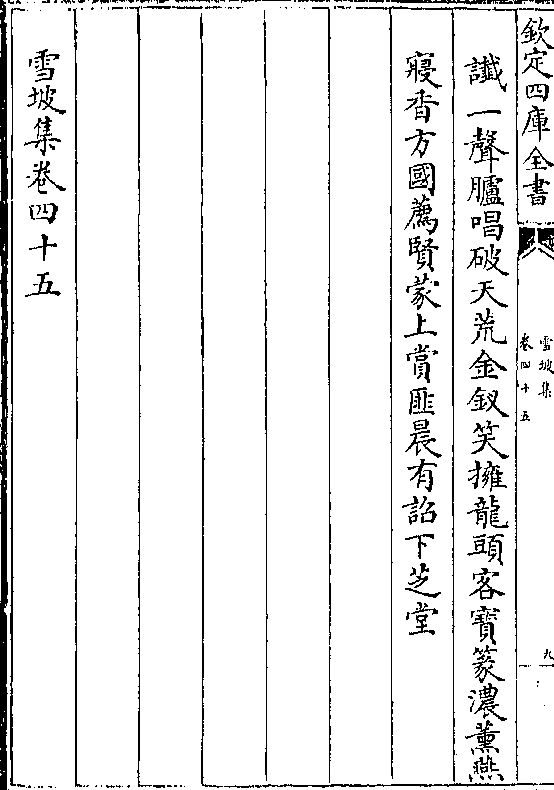 欽定四庫全書
雪坡集
卷四十五
九
讖一聲臚唱破天荒金釵笑擁龍頭客寳篆濃薰燕
寢香方國薦賢蒙上賞匪晨有詔下芝堂
雪坡集卷四十五